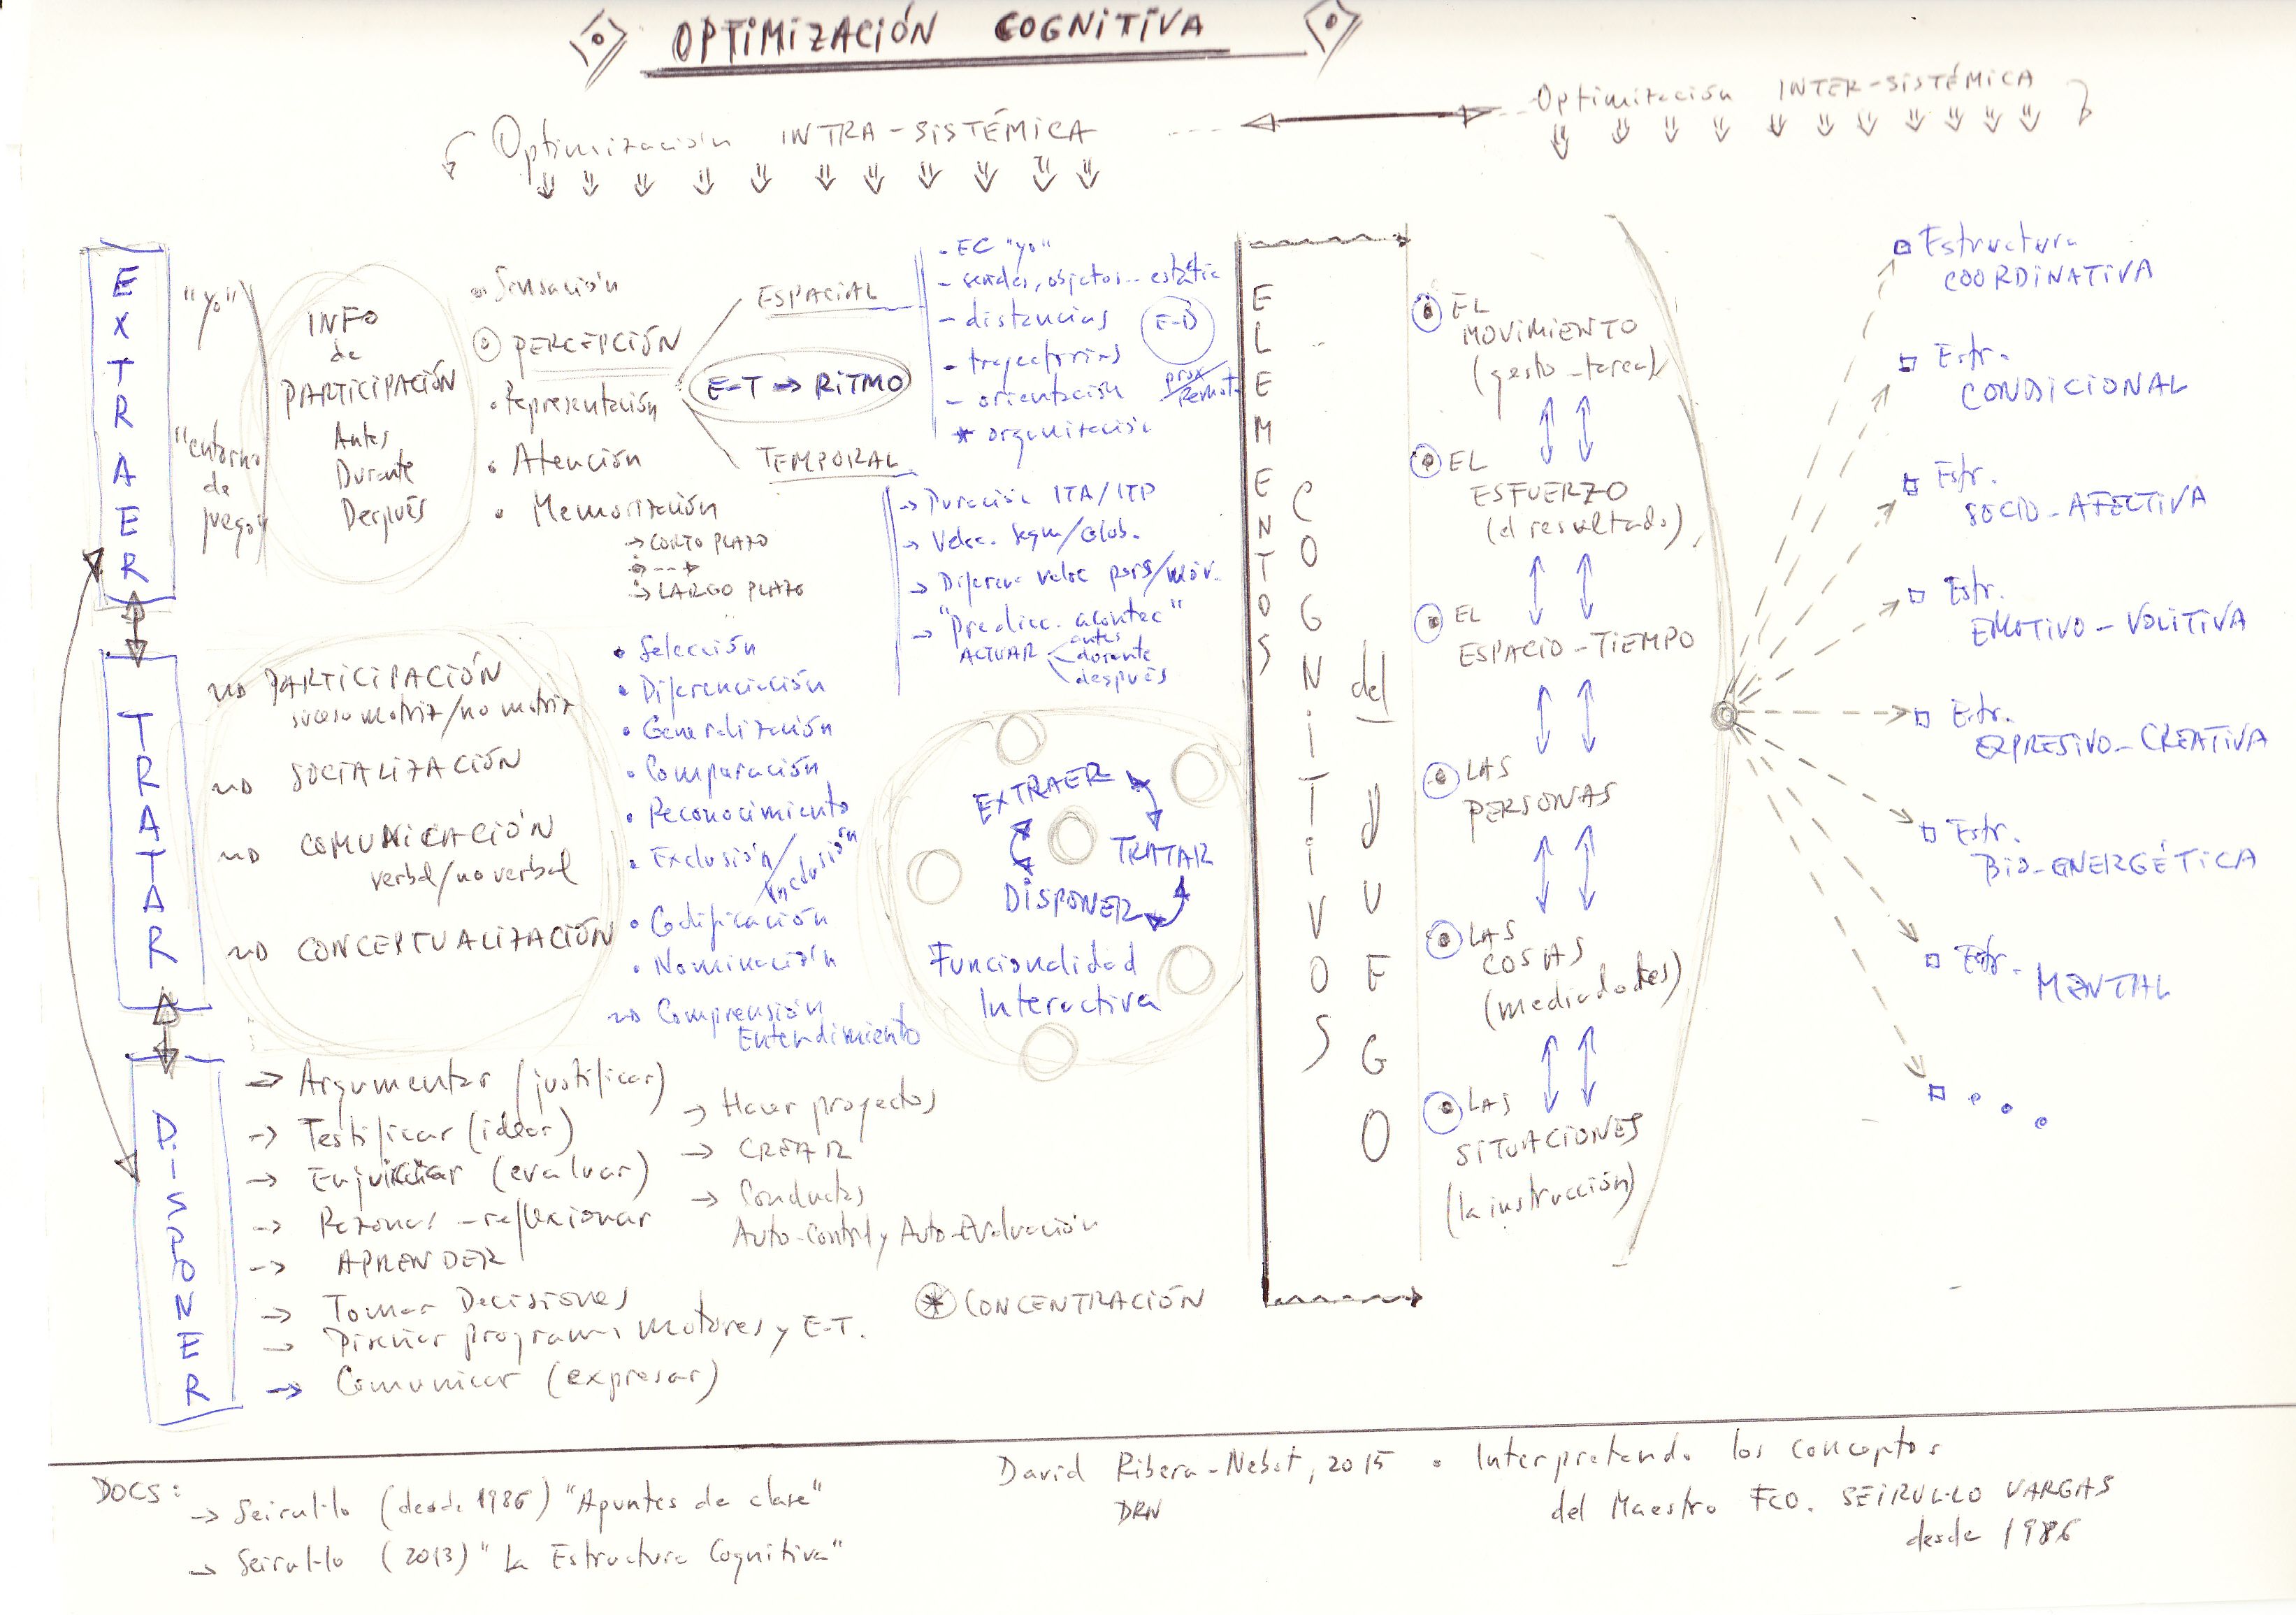 OPTIMIZACIÓN COGNITIVA
Optimización INTRA-SISTÉMICA
Optimización INTER-SISTÉMICA
EXTRAER
"yo"
"entorno
de
juego"
INFO
de
PARTICIPACIÓN
Antes
Durante
Después
Sensación
PERCEPCIÓN
Representación
Atención
Memorización
→ CORTO PLAZO
→ LARGO PLAZO
ESPACIAL
E-T → RITMO
TEMPORAL
- EC "yo"
- sendas, objetos.. estátic
- distancias
- trayectorias
- orientación
* organización
E-D
prox/
remoto
→ Duración ITA/ITP
→ Veloc. Segm/Glob.
→ Diferenc veloc pers/móv.
→ "Predicc. acontec"
ACTUAR
antes
durante
después
TRATAR
PARTICIPACIÓN
suceso motriz/no motriz
SOCIALIZACIÓN
COMUNICACIÓN
verbal/no verbal
CONCEPTUALIZACIÓN
• Selección
• Diferenciación
• Generalización
• Comparación
• Reconocimiento
• Exclusión/
inclusión
• Codificación
• Nominación
Comprensión
Entendimiento
EXTRAER
TRATAR
DISPONER
Funcionalidad
Interactiva
DISPONER
→ Argumentar (justificar)
→ Testificar (idear)
→ Enjuiciar (evaluar)
→ Razonar - reflexionar
→ APRENDER
→ Tomar Decisiones
→ Diseñar programas motores y E-T.
→ Comunicar (expresar)
→ Hacer proyectos
→ CREAR
→ Conductas
Auto-Control y Auto-Evaluación
* CONCENTRACIÓN
ELEMENTOS
COGNITIVOS
del
JUEGO
EL
MOVIMIENTO
(gesto - tarea)
EL
ESFUERZO
(el resultado)
EL
ESPACIO - TIEMPO
LAS
PERSONAS
LAS
COSAS
(mediadores)
LAS
SITUACIONES
(la instrucción)
Estructura
COORDINATIVA
Estr.
CONDICIONAL
Estr.
SOCIO - AFECTIVA
Estr.
EMOTIVO - VOLITIVA
Estr.
EXPRESIVO - CREATIVA
Estr.
BIO-ENERGÉTICA
Estr.
MENTAL
DOCS:
→ Seirul·lo (desde 1986) "Apuntes de clase"
→ Seirul·lo (2013) "La Estructura Cognitiva"
David Ribera-Nebot, 2015 • Interpretando los conceptos
DRN
del Maestro FCO. SEIRUL·LO VARGAS
desde 1986